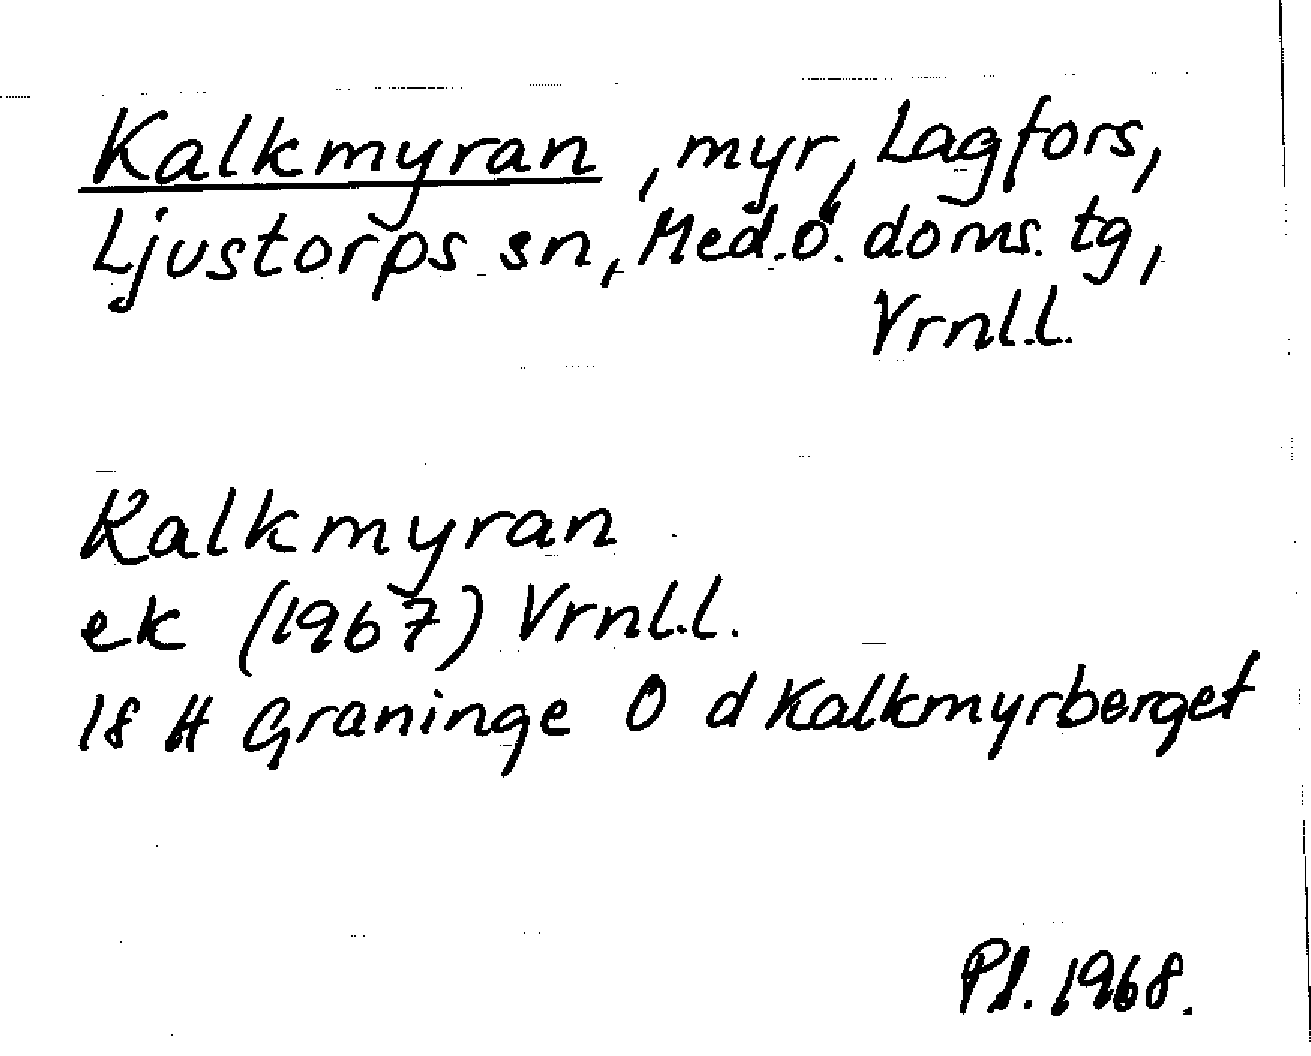 Kalkmyran, myr, Lagfors,
Ljustorps sn, Med.ö. doms. tg,
Vrnl.l.
Kalkmyran
ek (1967) Vrnl.l.
18 H Graninge O d Kalkmyrberget
Pl. 1968.